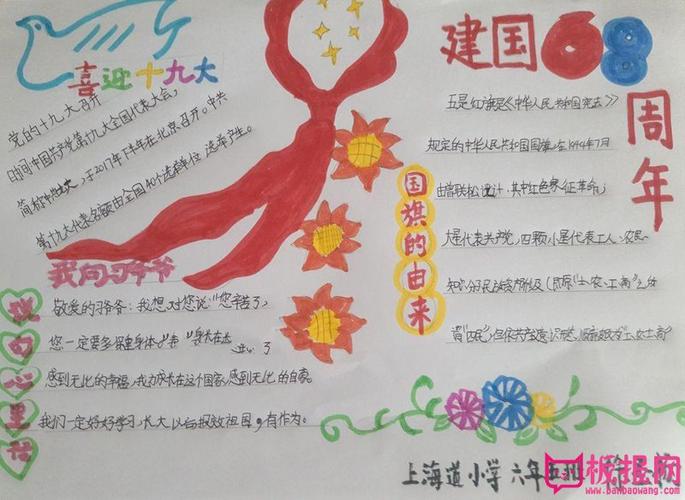 喜迎十九大
党的十九大召开
时间中国共产党第十九次全国代表大会,
简称十九大,于2017年下半年在北京召开。中共
第十九大代表名额由全国40个选举单位选举产生。
我向习爷爷
说句心里话
敬爱的习爷爷:我想对您说:“您辛苦了,
您一定要多保重身体。
感到无比的幸福,我为成长在这个国家,感到无比的自豪。
我们一定好好学习,长大以后报效祖国,有作为。
建国68
周年
国旗的由来
五星红旗是《中华人民共和国宪法》
规定的中华人民共和国国旗,在1949年7月
由曾联松设计,其中红色象征革命,
大星代表共产党,四颗小星代表工人、农民、
上海道小学 六年五班
板报网
www.banbaowang.com